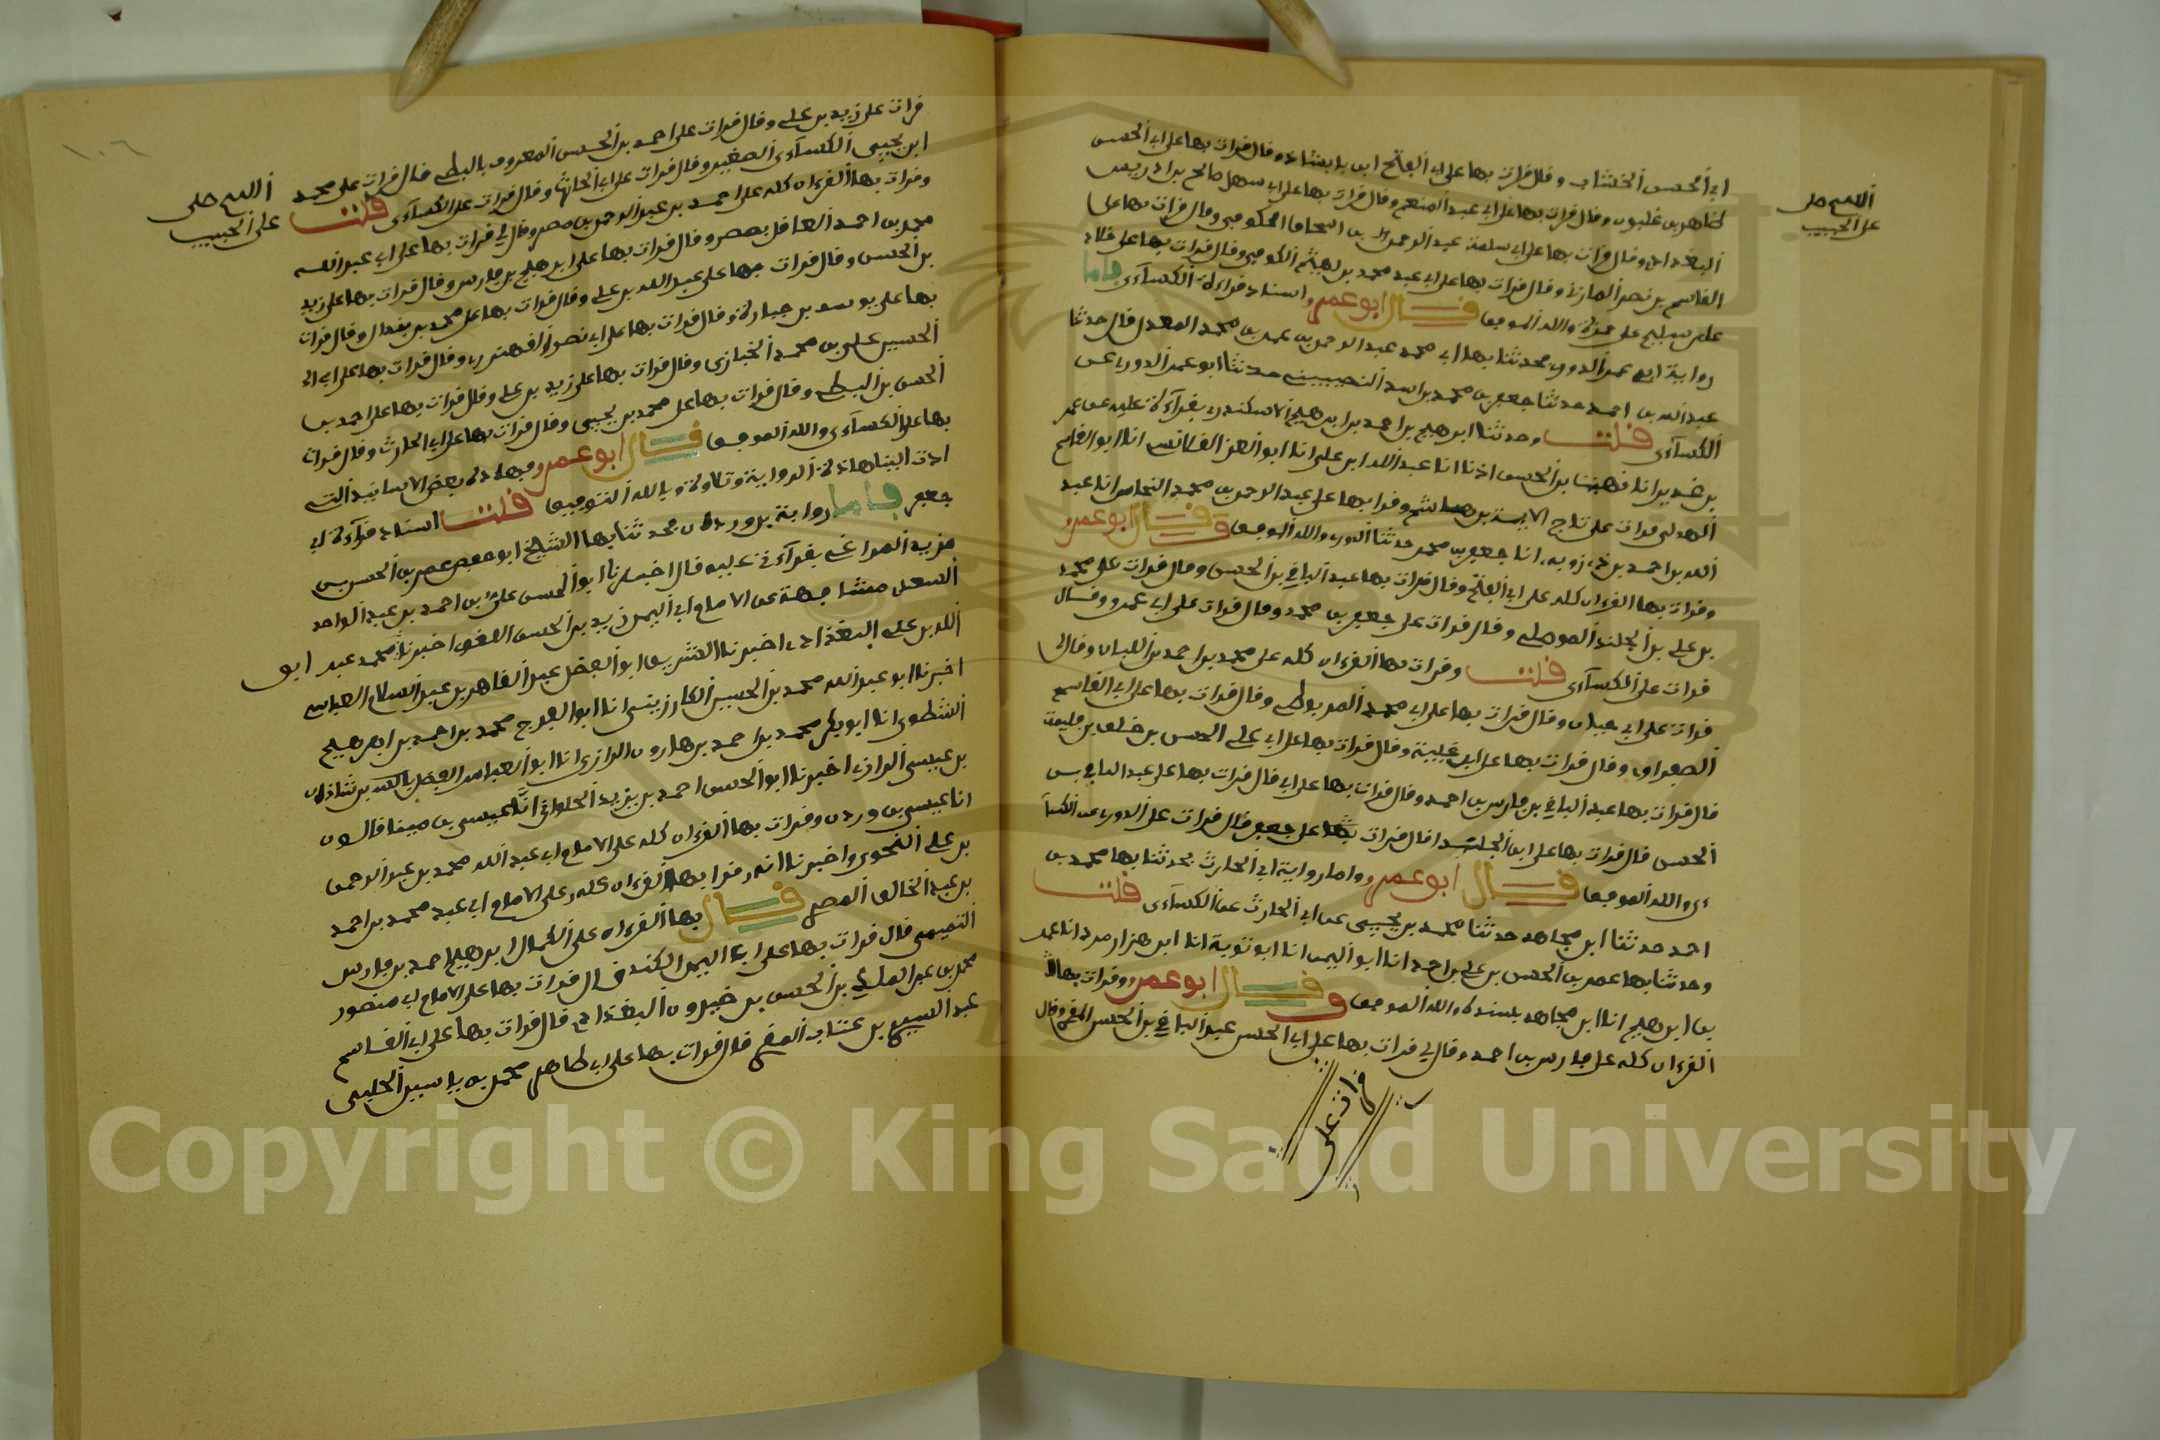 اللهم صل
على الحبيب
ابي الحسن الخشاب وقال قرات بها على ابي الفتح ابن بابشاذ وقال قرات بها على ابي الحسن
طاهر بن غلبون وقال قرات بها على ابي عبد المنعم وقال قرات بها على ابي سهل صالح بن ادريس
البغدادي وقال قرات بها على ابي سلمة عبد الرحمن بن اسحاق الكوفي وقال قرات بها على
القاسم بن نصر المازني وقال قرات بها على ابي عبد محمد بن الهيثم الكوفي وقال قرات بها على خلاد
على سليم على حمزة والله الموفق قال ابو عمرو واسناد قراءة الكسآءي فاما
رواية ابي عمر الدوري فحدثنا بها ابي محمد عبد الرحمن بن عمر بن محمد المعدل قال حدثنا
عبد الله بن احمد حدثنا جعفر بن محمد بن اسد النصيبيني حدثنا ابو عمر الدوري عن
الكسآءي قلت وحدثنا ابرهيم بن احمد بن ابرهيم الاسكندري بقرآءة عليه عن عمر
بن غدير انا الحسن اذنا انا عبد الله ابن علي انا ابو العز القلانسي انا ابو القاسم
الهذلي قرات على تاج الايمة بن هاشم وقرا بها على عبد الرحمن بن محمد النحاس انا عبد
الله بن احمد بن انا جعفر بن محمد حدثنا الدوري والله الموفق وقال ابو عمرو
وقرات بها القرءان كله على ابي الفتح وقال قرات بها عبد الباقي بن الحسن وقال قرات على محمد
بن علي بن الجلندا الموصلي وقال قرات على جعفر بن محمد وقال قرات على ابي عمرو وقال
قرات على الكسآءي قلت وقرات بها القرءان كله على محمد بن احمد بن اللبان وقال لي
قرات على ابي حيان وقال قرات بها على ابي محمد المربوطي وقال قرات بها على ابي القاسم
الصفراوي وقال قرات بها على ابن عطية وقال قرات بها على ابي علي الحسن بن خلف بن بليمة
قال قرات بها عبد الباقي بن فارس بن احمد وقال قرات بها على ابي قال قرات بها على عبد الباقي بن
الحسن قال قرات بها على ابن الجلندا قال قرات بها على جعفر قال قرات على الدوري عن الكسآ
ءي والله الموفق قال ابو عمرو واما رواية ابي الحارث فحدثنا بها محمد بن
احمد حدثنا ابن مجاهد حدثنا محمد بن يحيى عن ابي الحارث عن الكسآءي قلت
وحدثنا بها عمر بن الحسن بن علي بن احمد انا ابو اليمن انا ابو توبة انا ابن هزارمرد انا عمر
بن ابرهيم انا ابن مجاهد بسنده والله الموفق وقال ابو عمرو وقرات بها
القرءان كله على فارس بن احمد وقال لي قرات بها على ابي الحسن عبد الباقي بن الحسن المقري وقال
قرات على
١٠٦
اللهم صل
على الحبيب
قرات على زيد بن علي وقال قرات على احمد بن الحسن المعروف بالبطي قال قرات على محمد
ابن يحيى الكسآءي الصغير وقال قرات على ابي الحارث وقال قرات على الكسآءي قلت
وقرات بها القرءان كله على احمد بن عبد الرحمن بمصر وقال لي قرات بها على ابي عبد الله
محمد بن احمد العاقل بمصر وقال قرات بها على ابرهيم بن فارس وقال قرات بها على زيد
بن الحسن وقال قرات بها على عبد الله بن علي وقال قرات بها على محمد بن بندار وقال قرات
بها على يوسف بن جبارة وقال قرات بها على ابي نصر القهندري وقال قرات بها على ابي ال
الحسين علي بن محمد الخبازي وقال قرات بها على زيد بن علي وقال قرات بها على احمد بن
الحسن بن البطي وقال قرات بها على محمد بن يحيى وقال قرات بها على ابي الحارث وقال قرات
بها على الكسآءي والله الموفق قال ابو عمرو وبهذه بعض الاسانيد التي
ادت الينا هاذه الرواية وتلاوة وبالله التوفيق قلت اسناد قرآءة ابي
جعفر فاما رواية بن وردان فحدثنا بها الشيخ ابو حفص عمر بن الحسن بن
مزيد المراغي بقرآءتي عليه قال اخبرنا ابو الحسن علي بن احمد بن عبد الواحد
السعدي مشافهة عن الامام ابي اليمن زيد بن الحسن اللغوي اخبرنا محمد عبد ابو
الله بن علي البغدادي اخبرنا الشريف ابو الفضل عبد القاهر بن عبد السلام العباسي
اخبرنا ابو عبد الله محمد بن الحسين الكارزيني انا ابو الفرج محمد بن احمد بن ابرهيم
الشطوي انا ابو بكر محمد بن احمد بن هارون الرازي انا ابو العباس الفضل بن شاذان
بن عيسى الرازي اخبرنا ابو الحسن احمد بن يزيد الحلواني انا عيسى بن مينا قالون
انا عيسى بن وردان وقرات بها القرءان كله على الامام ابي عبد الله محمد بن عبد الرحمن
بن علي النحوي واخبرنا انه قرا بها القرءان كله على الامام ابي عبد محمد بن احمد
بن عبد الخالق المصري قال بها القرءان على الكمال ابرهيم احمد بن فارس
التميمي قال قرات بها على ابي اليمن الكندي قال قرات بها على الامام ابي منصور
محمد بن عبد الملك بن الحسن بن خيرون البغدادي قال قرات بها على ابي القاسم
عبد السيد بن عتاب المقري قال قرات بها على ابي طاهر محمد بن ياسين الحلبي
Copyright © King Saud University